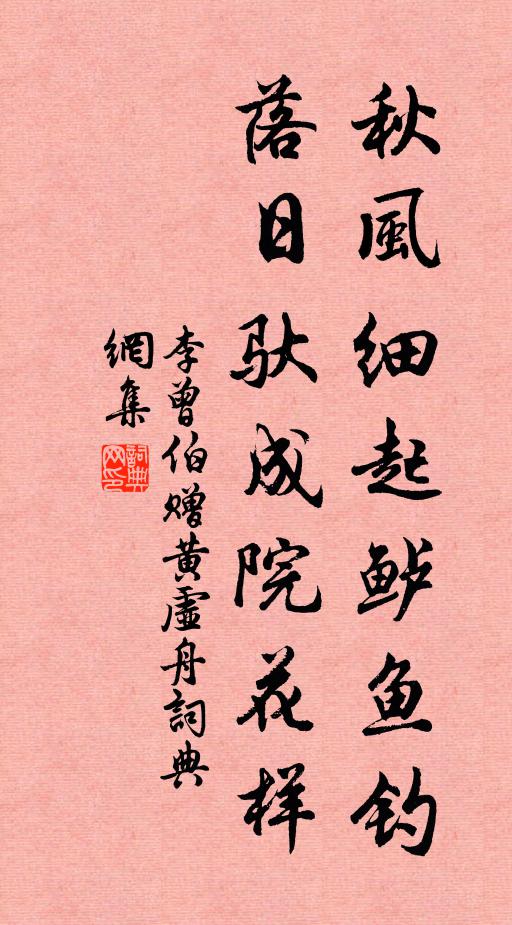 秋風细起鲈鱼钓
落日驮成院花样
李曾伯赠黄虛舟詞典
網集
詞典
网印